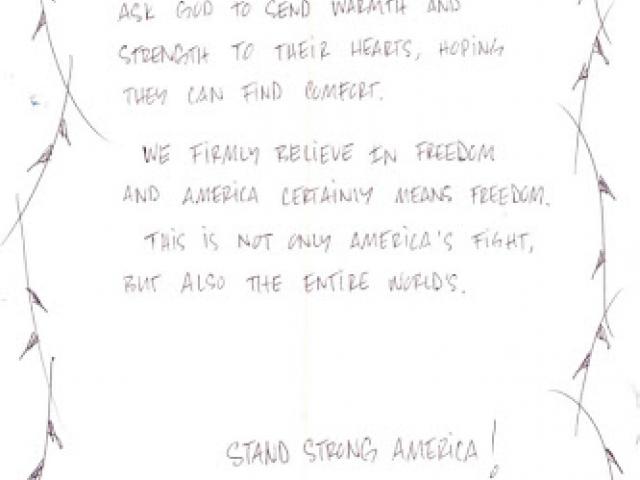 ASK GOD TO SEND WARMTH AND
STRENGTH TO THEIR HEARTS, HOPING
THEY CAN FIND COMFORT.
WE FIRMLY BELIEVE IN FREEDOM
AND AMERICA CERTAINLY MEANS FREEDOM.
THIS IS NOT ONLY AMERICA'S FIGHT,
BUT ALSO THE ENTIRE WORLD'S.
STAND STRONG AMERICA!